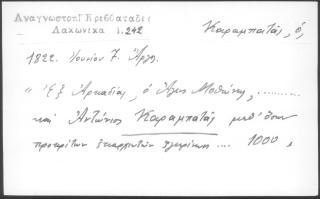 Ἀναγνωστοπ. Κρεββαταδε
Λακωνικα 1.242
Καραμπατᾶς, ὁ,
1822. Ἰουνίου 7. Ἄργος.
" Ἐξ Ἀρκαδίας, ὁ Ἅγιος Μεθώνης, ..........
καὶ Ἀντώνιος Καραμπατᾶς μεθ' ὅλων
προκρίτων .... 1000,